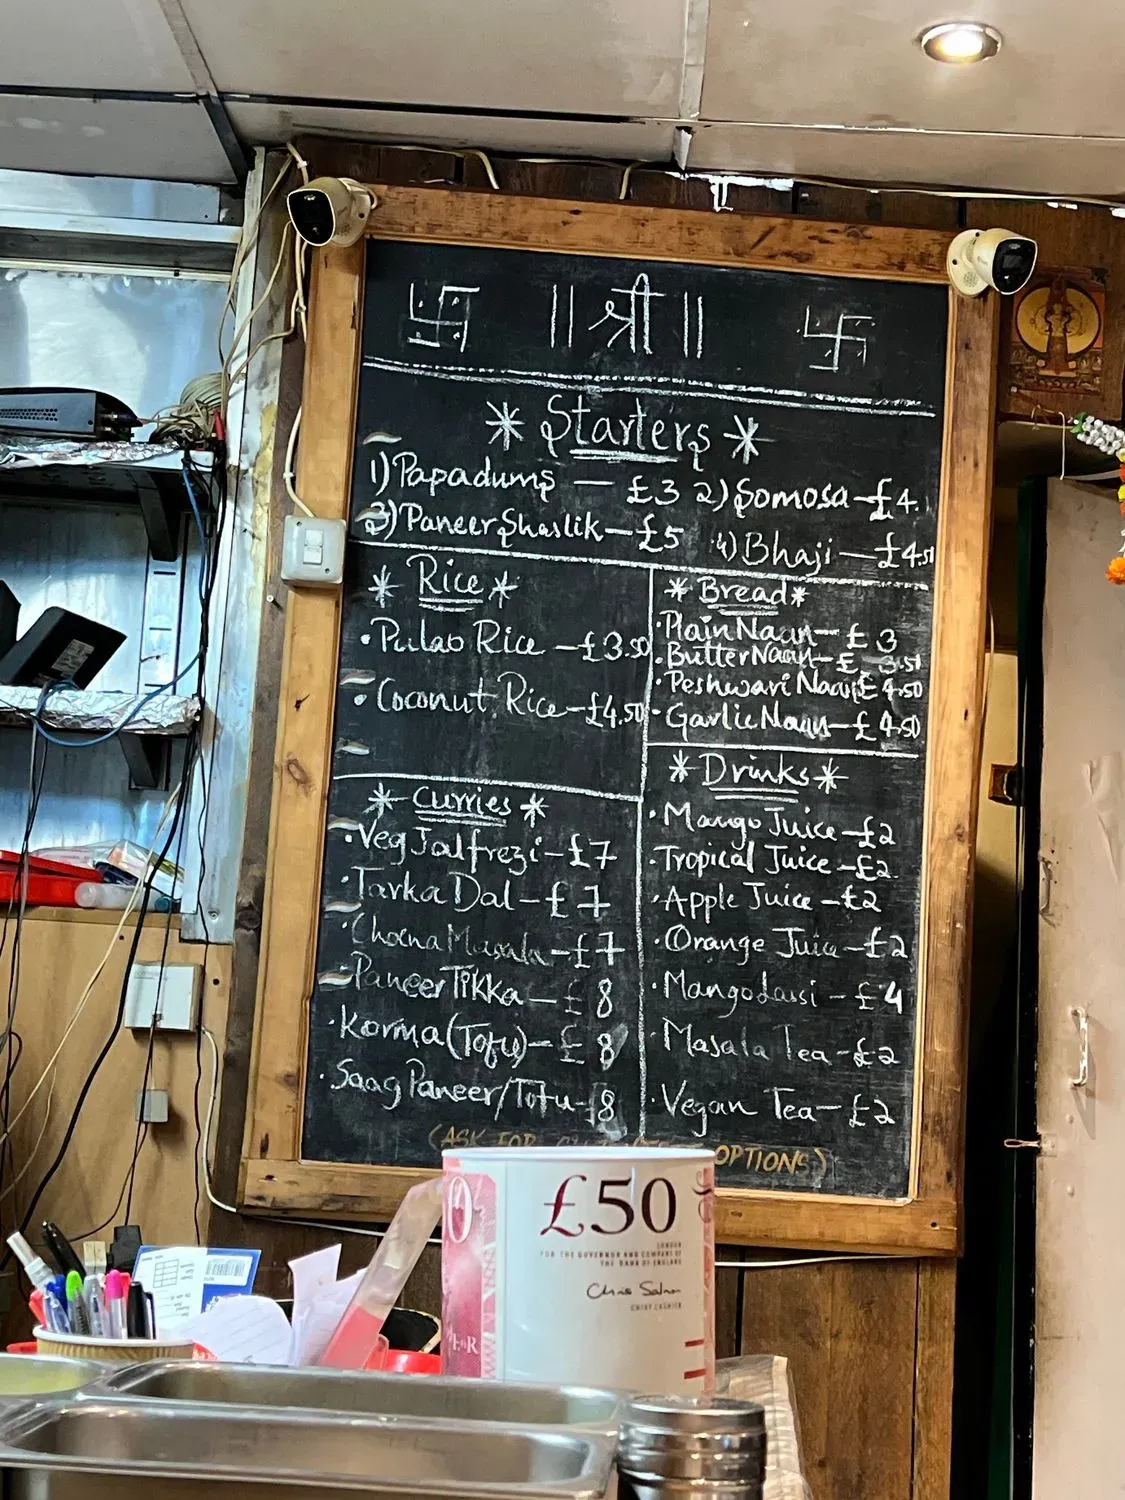 卐 ॥ श्री ॥ 卐
* Starters *
1) Papadums — £3 2) Somosa — £4.
3) Paneer Shaslik — £5 4) Bhaji — £4.50
* Rice *
• Pulao Rice — £3.50
• Coconut Rice — £4.50
* Bread *
• Plain Naan — £3
• Butter Naan — £3.50
• Peshwari Naan £4.50
• Garlic Naan — £4.50
* Curries *
• Veg Jalfrezi — £7
• Tarka Dal — £7
• Chana Masala — £7
• Paneer Tikka — £8
• Korma (Tofu) — £8
• Saag Paneer/Tofu — £8
* Drinks *
• Mango Juice — £2
• Tropical Juice — £2
• Apple Juice — £2
• Orange Juice — £2
• Mango Lassi — £4
• Masala Tea — £2
• Vegan Tea — £2
(ASK FOR OPTIONS)
£50
LONDON
FOR THE GOVERNOR AND COMPANY OF
THE BANK OF ENGLAND
CHIEF CASHIER